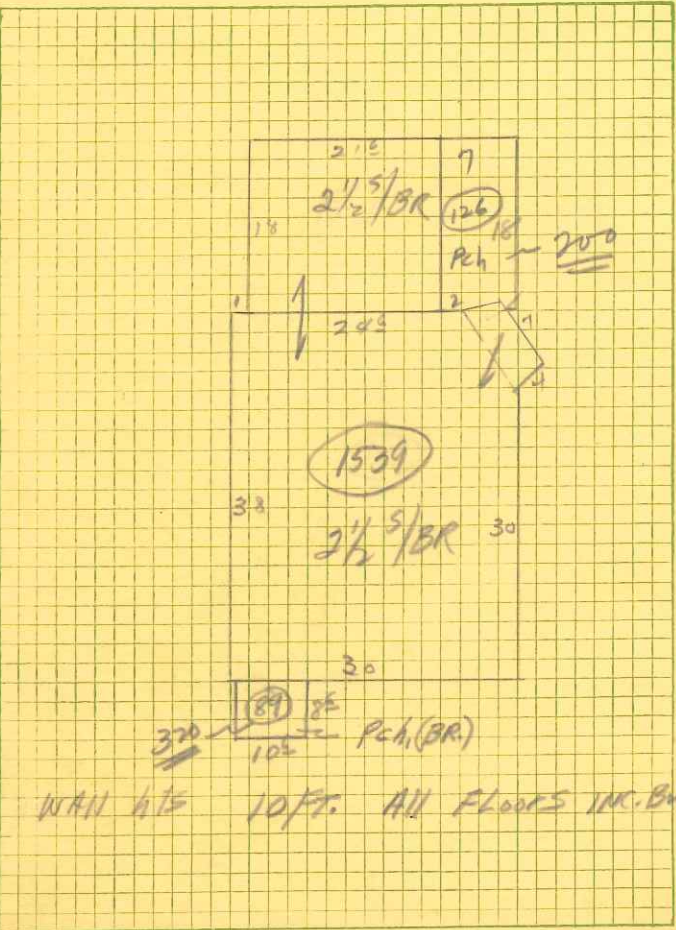 21⁶ 7
2½ S/BR 126
18 18
Pch 200
1 2
24⁶ 7
1539
38 2½ S/BR 30
30
89 8⁶
320 Pch, (BR.)
10⁶
WAll hts 10 FT. All FLOORS INC.